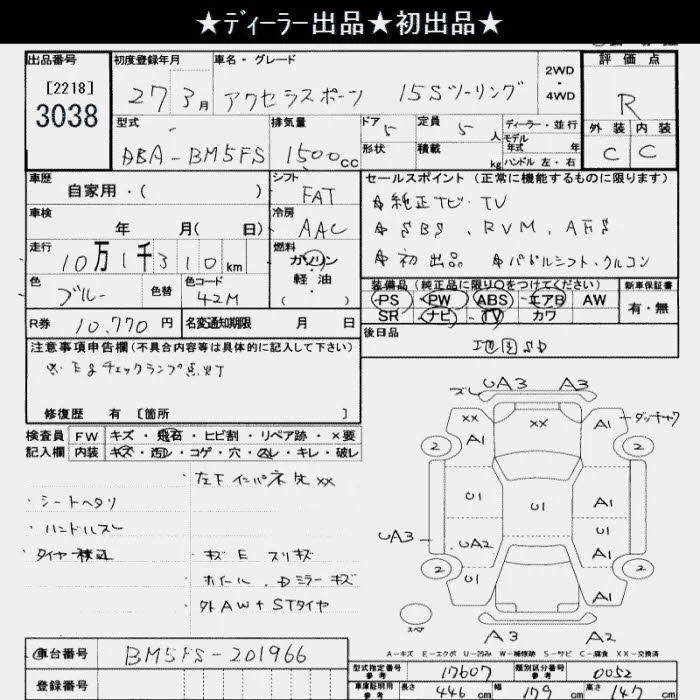 ★ディーラー出品★初出品★
出品番号 初度登録年月 車名・グレード 2WD・4WD 評価点
[2218]
3038 27年3月 アクセラスポーツ 15Sツーリング R
型式 排気量 ドア 5 定員 5 人 ディーラー・並行 外装 内装
モデル年式 年
ABA-BM5FS 1500cc 形状 積載 kg ハンドル 左・右 C C
車歴 シフト セールスポイント (正常に機能するものに限ります)
自家用・( ) FAT ☆純正ナビ・TV
車検 冷房 ☆SBS、RVM、AFS
年 月( 日) AAC
走行 燃料 ☆初出品 ☆パドルシフト、クルコン
10万1千310km ガソリン・軽油・( )
色 色替 色コード 装備品 (純正品に限り○をつけてください) 新車保証書
ブルー 42M PS PW ABS エアB AW 有・無
SR ナビ TV カワ
R券 10,770円 名変通知期限 月 日 後日品
地図SD
注意事項申告欄(不具合内容等は具体的に記入して下さい)
※.Egチェックランプ点灯
修復歴 有 [箇所 ]
検査員 FW キズ・飛石・ヒビ割・リペア跡・×要
記入欄 内装 キズ・汚レ・コゲ・穴・スレ・キレ・破レ
左下インパネ欠××
・シートヘタリ
・ハンドルスレ
・タイヤ
キズ E スリキズ
ホイール、Dミラーキズ
外AW+STタイヤ
ズレ UA3 A3
×× ×× A1
A1
2 2
U1 U1 A1
UA3 U1
UA2 A1
2 2
U1 A1
スペア
A3 A2
A-キズ E-エクボ U-凹み W-補修跡 S-サビ C-腐食 XX-交換済
車台番号 BM5FS-201966
登録番号
型式指定番号 参考 17607 類別区分番号 参考 0052
車庫証明用 参考 長さ 446 cm 幅 179 cm 高さ 147 cm